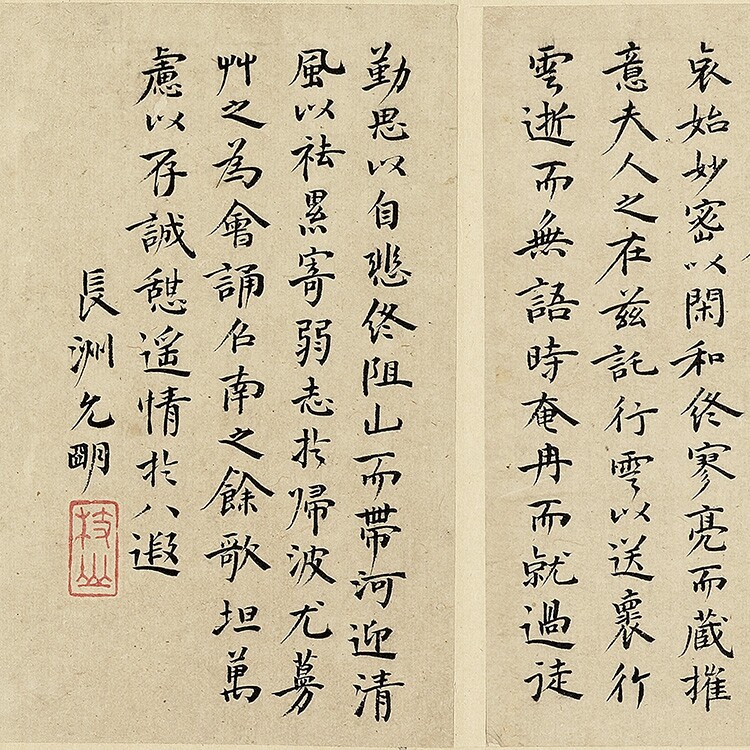 哀始妙密以閑和終寥亮而蔵摧
意夫人之在茲託行雲以送褱行
雲逝而無語時奄冉而就過徒
勤思以自悲終阻山而帶河迎清
風以祛累寄弱志於歸波尤蔓
艸之為會誦召南之餘歌坦萬
慮以存誠憩遥情於八遐
長洲允明
枝山